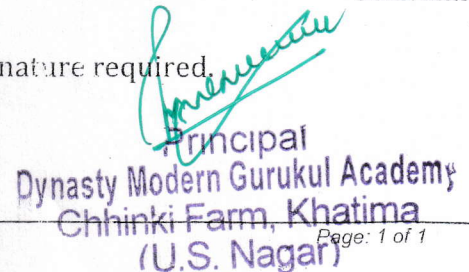 nature required.
Principal
Dynasty Modern Gurukul Academy
Chhinki Farm, Khatima
Page: 1 of 1
(U.S. Nagar)